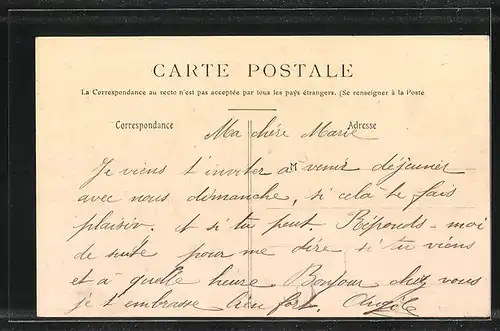 CARTE POSTALE
La Correspondance au recto n'est pas acceptée par tous les pays étrangers. (Se renseigner à la Poste
Correspondance
Adresse
Ma chére Marie
Je viens t'inviter a venir déjeuner
avec nous dimanche, si celà te fais
plaisir. et si tu peut. Réponds-moi
de suite pour me dire si tu viens
et à quelle heure. Bonjour chez vous
je t'embrasse bien fort.